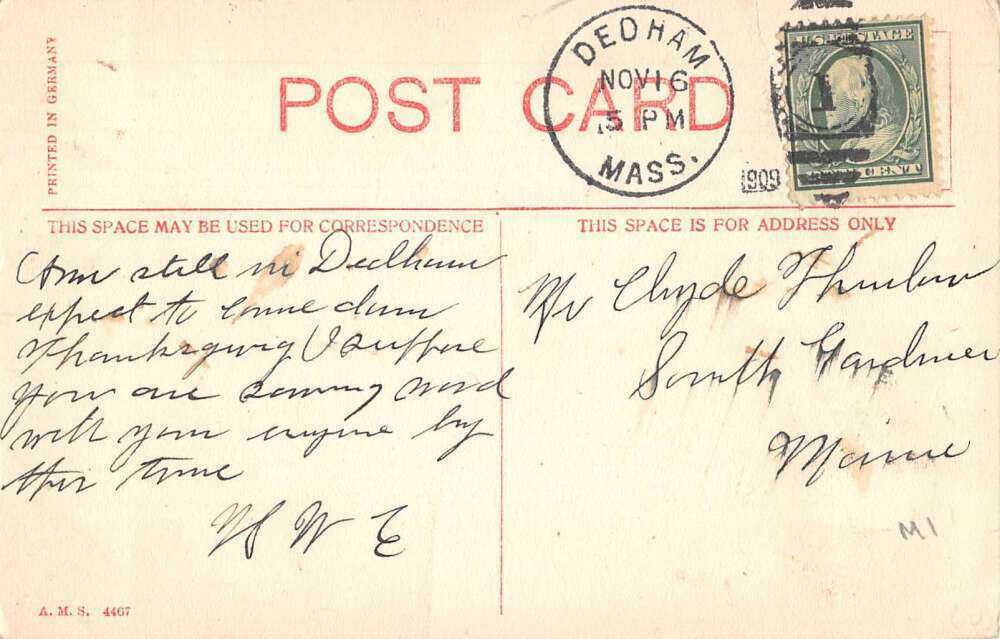 PRINTED IN GERMANY
POST CARD
DEDHAM
NOV 16
5 PM
MASS.
1909
U.S. POSTAGE
1
CENT
THIS SPACE MAY BE USED FOR CORRESPONDENCE
THIS SPACE IS FOR ADDRESS ONLY
Am still in Dedham
expect to come down
Thanksgiving I suppose
you are sawing wood
with your engine by
this time
W E
Mr Clyde Thurlow
South Gardiner
Maine
M1
A. M. S. 4467